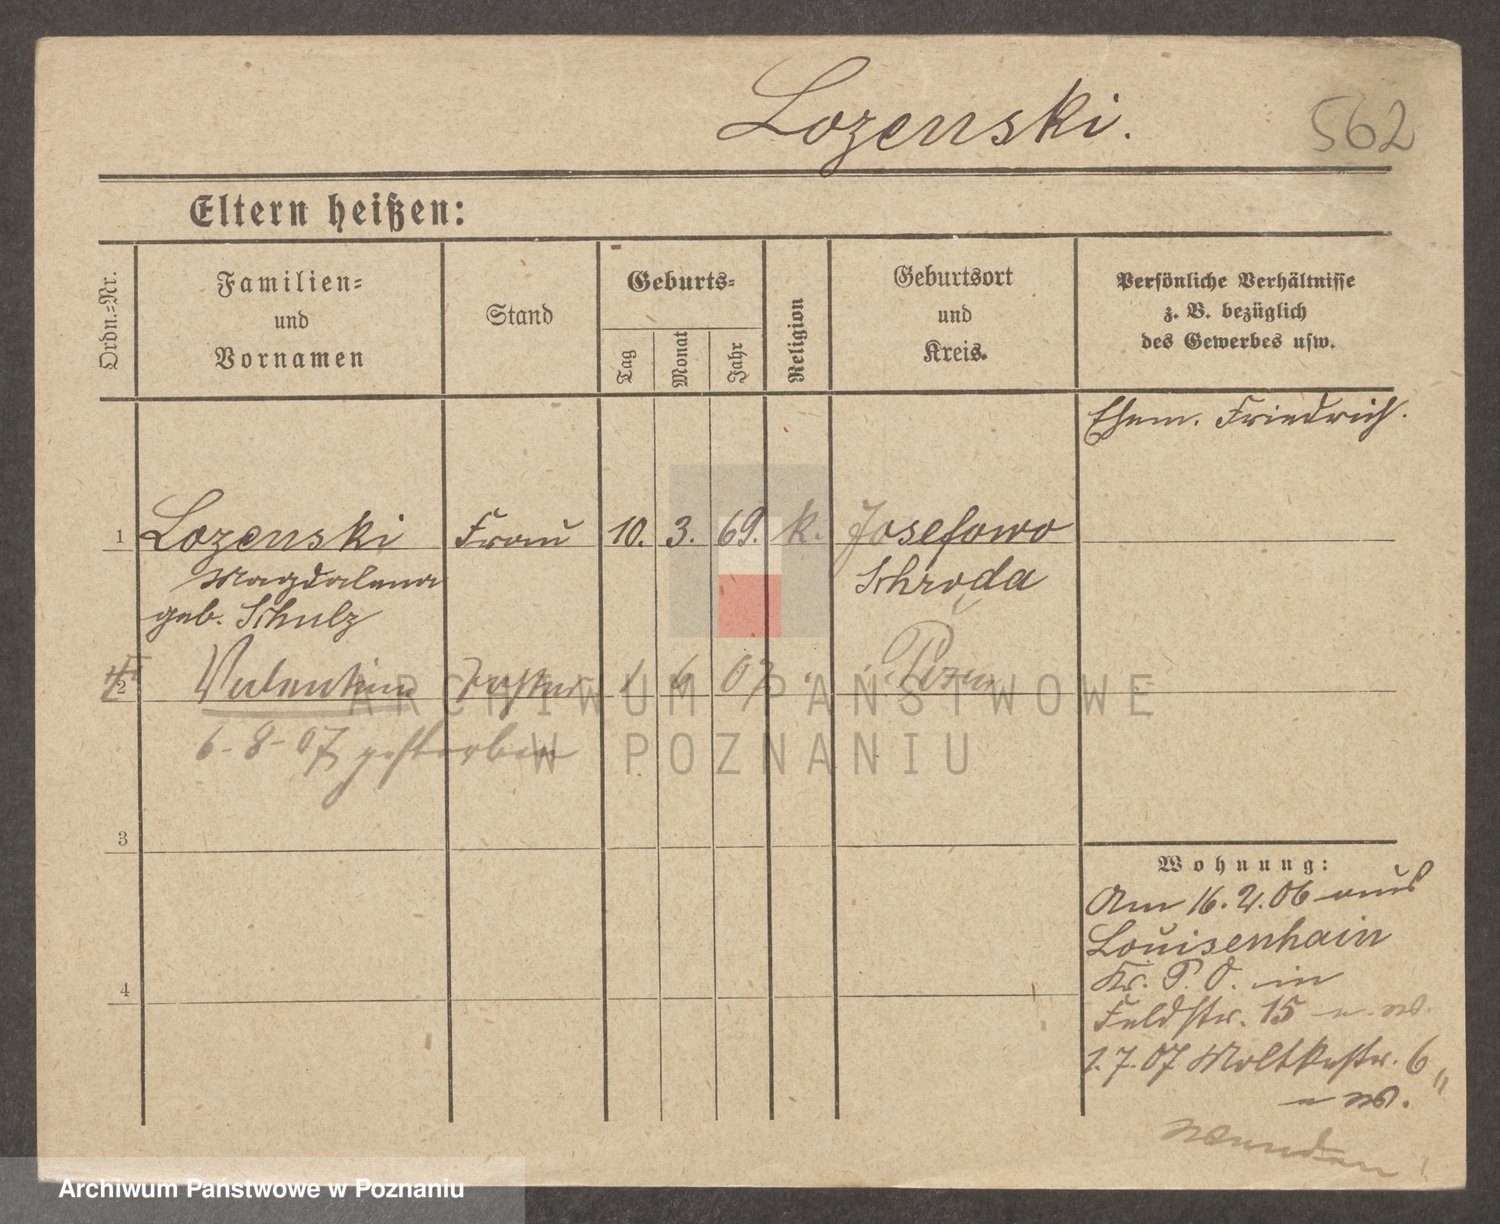 Lozenski.
562
Eltern heißen:
Ordn.=Nr.
Familien=
und
Vornamen
Stand
Geburts=
Tag
Monat
Jahr
Religion
Geburtsort
und
Kreis.
Persönliche Verhältnisse
z. B. bezüglich
des Gewerbes usw.
Ehem. Friedrich.
1 Lozenski Frau 10. 3. 69. k. Josefowo
Magdalena Schroda
geb. Schulz
2 Valentin 1 6 07 " Posen
6-8-07 gestorben
3
4
Wohnung:
Am 16.2.06 aus
Louisenhain
Kr. P. O. in
Feldstr. 15
1.7.07 Moltkestr. 6
Wenden!
ARCHIWUM PAŃSTWOWE
W POZNANIU
Archiwum Państwowe w Poznaniu